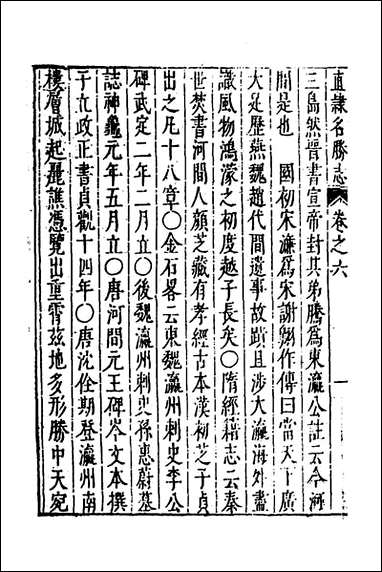 直隸名勝志　卷之六　一
三島然晉書宣帝封其弟騰爲東瀛公註云今河
間是也　國初宋濂爲宋謝翱作傳曰當天下廣
大処歷燕魏趙代間遺事故蹟且涉大瀛海外盡
識風物鴻濛之初度越子長矣〇隋經籍志云秦
世焚書河間人顏芝藏有孝經古本漢初芝子貞
出之凡十八章〇金石畧云東魏瀛州刺史李公
碑武定二年二月立〇後魏瀛州刺史孫惠蔚墓
誌神龜元年五月立〇唐河間元王碑岑文本撰
于立政正書貞觀十四年〇唐沈佺期登瀛州南
樓層城起麗譙憑覽出重霄茲地多形勝中天宛